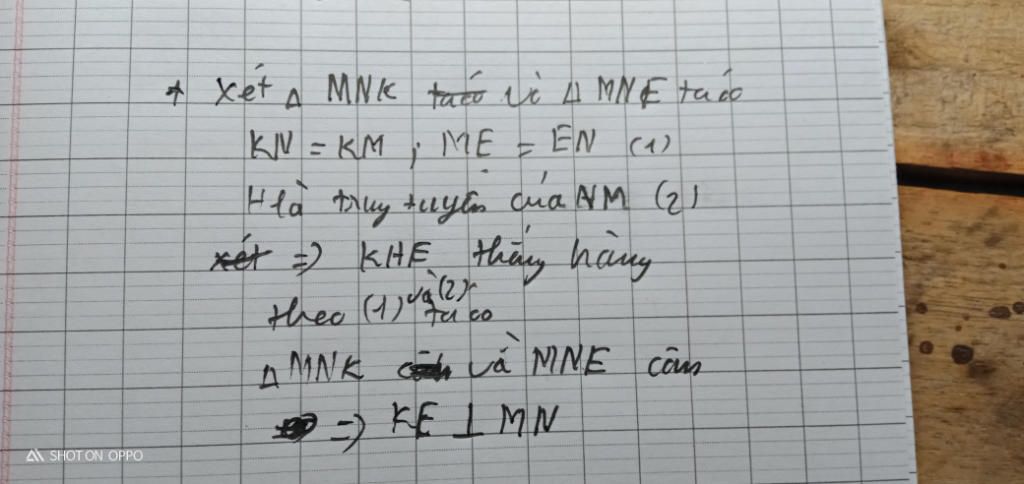 * Xét Δ MNK ta có và Δ MNE ta có
KN = KM ; ME = EN (1)
H là trug tuyến của NM (2)
xét => KHE thẳng hàng
theo (1) và (2) ta có
Δ MNK và MNE cân
=> KE ⊥ MN
SHOT ON OPPO